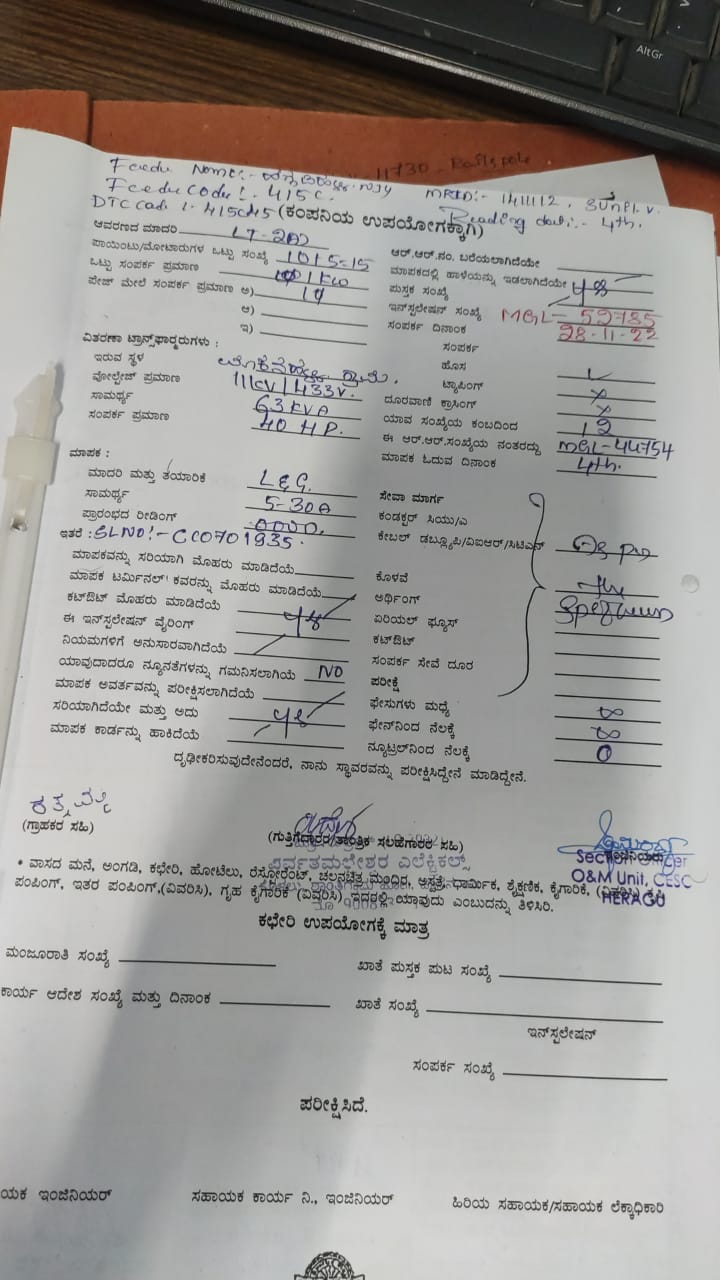 AltGr
11730 - Rails pole
Feeder Name:- NJY MRID:- 1411112
Feeder Code:- 415C. Reading dat:- 4th.
DTC Code :- 415C45 (ಕಂಪನಿಯ ಉಪಯೋಗಕ್ಕಾಗಿ)
ಆವರಣದ ಮಾದರಿ LT-2A2 ಆರ್.ಆರ್.ನಂ. ಬರೆಯಲಾಗಿದೆಯೇ
ಪಾಯಿಂಟು/ಮೋಟಾರುಗಳ ಒಟ್ಟು ಸಂಖ್ಯೆ ಮಾಪಕದಲ್ಲಿ ಹಾಳೆಯನ್ನು ಇಡಲಾಗಿದೆಯೇ
ಒಟ್ಟು ಸಂಪರ್ಕ ಪ್ರಮಾಣ 1KW ಪುಸ್ತಕ ಸಂಖ್ಯೆ
ಪೇಜ್ ಮೇಲೆ ಸಂಪರ್ಕ ಪ್ರಮಾಣ ಅ) ಇನ್‌ಸ್ಟಲೇಷನ್ ಸಂಖ್ಯೆ MGL-52785
ಆ) ಸಂಪರ್ಕ ದಿನಾಂಕ 28-11-22
ಇ) ಸಂಪರ್ಕ
ವಿತರಣಾ ಟ್ರಾನ್ಸ್‌ಫಾರ್ಮರುಗಳು : ಹೊಸ
ಇರುವ ಸ್ಥಳ ಟ್ಯಾಪಿಂಗ್
ವೋಲ್ಟೇಜ್ ಪ್ರಮಾಣ 11KV/433V. ದೂರವಾಣಿ ಕ್ರಾಸಿಂಗ್ x
ಸಾಮರ್ಥ್ಯ 63 KVA ಯಾವ ಸಂಖ್ಯೆಯ ಕಂಬದಿಂದ 12
ಸಂಪರ್ಕ ಪ್ರಮಾಣ 40 HP. ಈ ಆರ್.ಆರ್.ಸಂಖ್ಯೆಯ ನಂತರದ್ದು MGL-44754
ಮಾಪಕ : ಮಾಪಕ ಓದುವ ದಿನಾಂಕ 4th.
ಮಾದರಿ ಮತ್ತು ತಯಾರಿಕೆ L&G. ಸೇವಾ ಮಾರ್ಗ
ಸಾಮರ್ಥ್ಯ 5-30A ಕಂಡಕ್ಟರ್ ಸಿಯು/ಎ
ಪ್ರಾರಂಭದ ರೀಡಿಂಗ್ 0000. ಕೇಬಲ್ ಡಬ್ಲ್ಯೂಪಿ/ವಿಐಆರ್/ಸಿಟಿಎಸ್ As per
ಇತರೆ : SL NO:- CC0701935.
ಮಾಪಕವನ್ನು ಸರಿಯಾಗಿ ಮೊಹರು ಮಾಡಿದೆಯೆ ಕೊಳವೆ the
ಮಾಪಕ ಟರ್ಮಿನಲ್ ಕವರನ್ನು ಮೊಹರು ಮಾಡಿದೆಯೆ ಅರ್ಥಿಂಗ್
ಕಟ್‌ಔಟ್ ಮೊಹರು ಮಾಡಿದೆಯೆ ಏರಿಯಲ್ ಫ್ಯೂಸ್
ಈ ಇನ್‌ಸ್ಟಲೇಷನ್ ವೈರಿಂಗ್ ಕಟ್‌ಔಟ್
ನಿಯಮಗಳಿಗೆ ಅನುಸಾರವಾಗಿದೆಯೆ ಸಂಪರ್ಕ ಸೇವೆ ದೂರ
ಯಾವುದಾದರೂ ನ್ಯೂನತೆಗಳನ್ನು ಗಮನಿಸಲಾಗಿಯೆ NO ಪರೀಕ್ಷೆ
ಮಾಪಕ ಅವರ್ತವನ್ನು ಪರೀಕ್ಷಿಸಲಾಗಿದೆಯೆ ಫೇಸುಗಳು ಮಧ್ಯೆ ∞
ಸರಿಯಾಗಿದೆಯೇ ಮತ್ತು ಅದು ಫೇಸ್‌ನಿಂದ ನೆಲಕ್ಕೆ ∞
ಮಾಪಕ ಕಾರ್ಡನ್ನು ಹಾಕಿದೆಯೆ ನ್ಯೂಟ್ರಲ್‌ನಿಂದ ನೆಲಕ್ಕೆ 0
ದೃಢೀಕರಿಸುವುದೇನೆಂದರೆ, ನಾನು ಸ್ಥಾವರವನ್ನು ಪರೀಕ್ಷಿಸಿದ್ದೇನೆ ಮಾಡಿದ್ದೇನೆ.
(ಗ್ರಾಹಕರ ಸಹಿ) (ಗುತ್ತಿಗೆದ್ದಾರರ/ತಾಂತ್ರಿಕ ಸಲಹೆಗಾರರ ಸಹಿ)
Section Officer
O&M Unit, CESC
HERAGU
• ವಾಸದ ಮನೆ, ಅಂಗಡಿ, ಕಛೇರಿ, ಹೋಟೆಲು, ರೆಸ್ಟೋರೆಂಟ್, ಚಲನಚಿತ್ರ ಮಂದಿರ, ಆಸ್ಪತ್ರೆ, ಧಾರ್ಮಿಕ, ಶೈಕ್ಷಣಿಕ, ಕೈಗಾರಿಕೆ, (ವಿವರಿಸಿ) ಕೃಷಿ
ಪಂಪಿಂಗ್, ಇತರ ಪಂಪಿಂಗ್,(ವಿವರಿಸಿ), ಗೃಹ ಕೈಗಾರಿಕೆ (ವಿವರಿಸಿ) ಇದರಲ್ಲಿ ಯಾವುದು ಎಂಬುದನ್ನು ತಿಳಿಸಿರಿ.
ಕಛೇರಿ ಉಪಯೋಗಕ್ಕೆ ಮಾತ್ರ
ಮಂಜೂರಾತಿ ಸಂಖ್ಯೆ ಖಾತೆ ಪುಸ್ತಕ ಪುಟ ಸಂಖ್ಯೆ
ಕಾರ್ಯ ಆದೇಶ ಸಂಖ್ಯೆ ಮತ್ತು ದಿನಾಂಕ ಖಾತೆ ಸಂಖ್ಯೆ
ಇನ್‌ಸ್ಟಲೇಷನ್
ಸಂಪರ್ಕ ಸಂಖ್ಯೆ
ಪರೀಕ್ಷಿಸಿದೆ.
ಯಕ ಇಂಜಿನಿಯರ್ ಸಹಾಯಕ ಕಾರ್ಯ ನಿ., ಇಂಜಿನಿಯರ್ ಹಿರಿಯ ಸಹಾಯಕ/ಸಹಾಯಕ ಲೆಕ್ಕಾಧಿಕಾರಿ